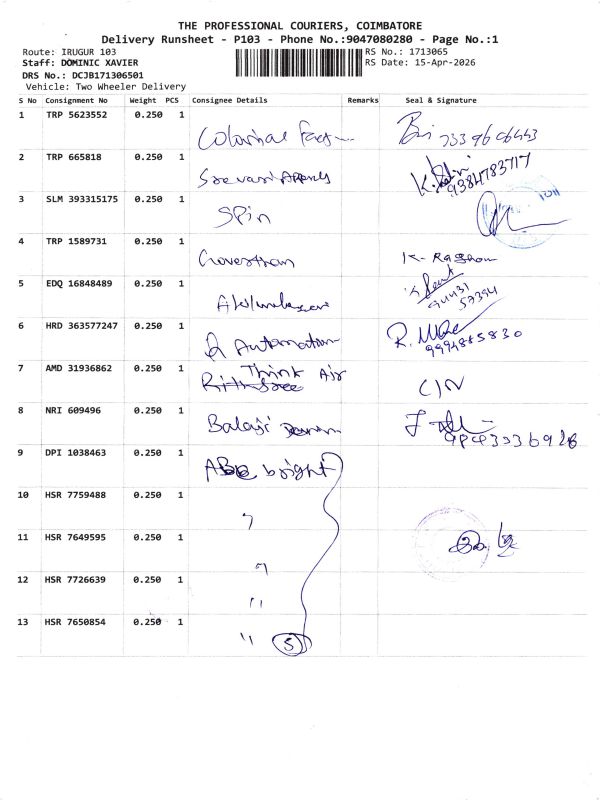 THE PROFESSIONAL COURIERS, COIMBATORE
Delivery Runsheet - P103 - Phone No.:9047080280 - Page No.:1
Route: IRUGUR 103 RS No.: 1713065
Staff: DOMINIC XAVIER RS Date: 15-Apr-2026
DRS No.: DCJB171306501
Vehicle: Two Wheeler Delivery
S No Consignment No Weight PCS Consignee Details Remarks Seal & Signature
1 TRP 5623552 0.250 1
2 TRP 665818 0.250 1 Agency K. 9384783717
3 SLM 393315175 0.250 1 Spin
4 TRP 1589731 0.250 1 K-
5 EDQ 16848489 0.250 1 94431
57394
6 HRD 363577247 0.250 1 R Automation R.
7 AMD 31936862 0.250 1 Think Air C/N
8 NRI 609496 0.250 1 Balaji
9 DPI 1038463 0.250 1 bright
10 HSR 7759488 0.250 1 "
11 HSR 7649595 0.250 1 "
12 HSR 7726639 0.250 1 "
13 HSR 7650854 0.250 1 " 5